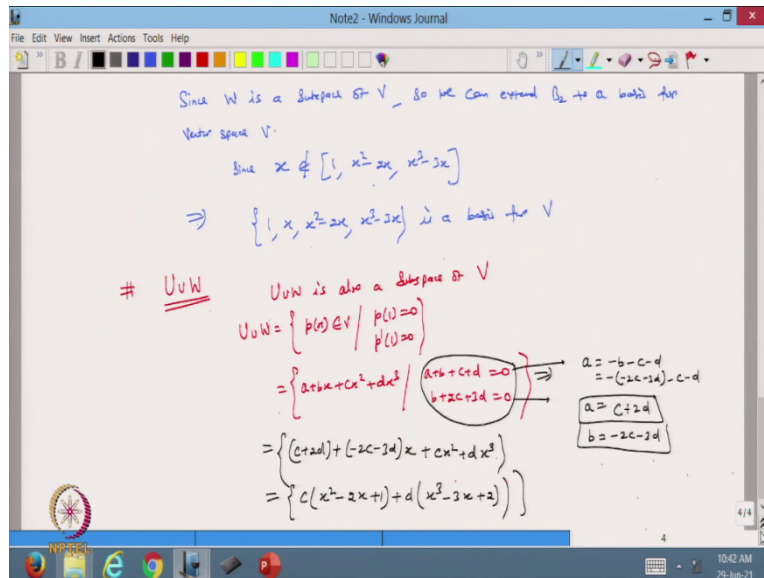 Note2 - Windows Journal
File Edit View Insert Actions Tools Help
Since W is a Subspace of V, so we can extend B₂ to a basis for
Vector space V.
Since x ∉ [1, x²-2x, x³-3x]
⇒ {1, x, x²-2x, x³-3x} is a basis for V
# U∪W U∪W is also a Subspace of V
U∪W = { p(x) ∈ V / p(1)=0
p'(1)=0 }
= { a+bx+cx²+dx³ / a+b+c+d=0
b+2c+3d=0 } ⇒
a = -b-c-d
= -(-2c-3d)-c-d
a = c+2d
b = -2c-3d
= { (c+2d)+(-2c-3d)x+cx²+dx³ }
= { c(x²-2x+1)+d(x³-3x+2) }
NPTEL
4/4
4
10:42 AM
29-Jun-21